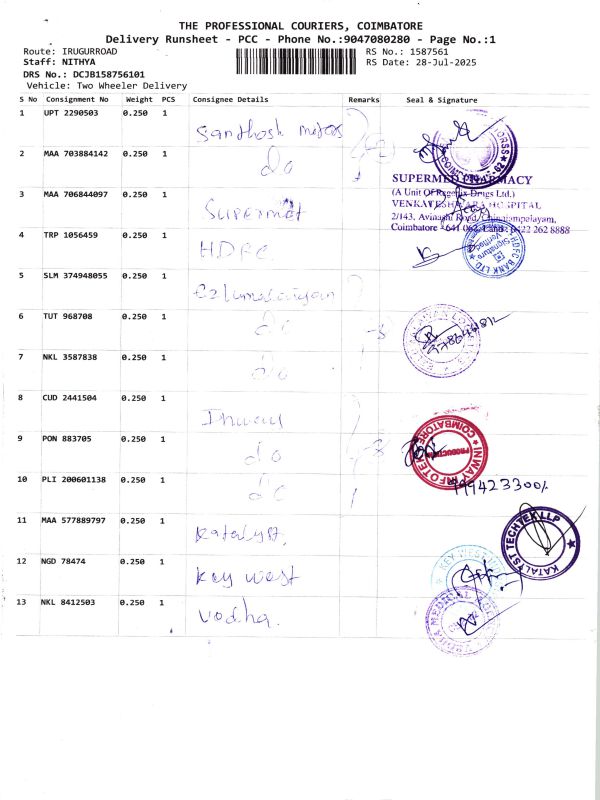 THE PROFESSIONAL COURIERS, COIMBATORE
Delivery Runsheet - PCC - Phone No.:9047080280 - Page No.:1
Route: IRUGURROAD RS No.: 1587561
Staff: NITHYA RS Date: 28-Jul-2025
DRS No.: DCJB158756101
Vehicle: Two Wheeler Delivery
S No Consignment No Weight PCS Consignee Details Remarks Seal & Signature
1 UPT 2290503 0.250 1 Santhosh
2 MAA 703884142 0.250 1 do
SUPERMED PHARMACY
(A Unit Of Drugs Ltd.)
3 MAA 706844097 0.250 1
VENKATESHWARA HOSPITAL
2/143, Avinashi Road, Chinniampalayam,
Coimbatore - 641 062. 0422 262 8888
4 TRP 1056459 0.250 1 HDFC HDFC BANK LTD Signature Verified
5 SLM 374948055 0.250 1
6 TUT 968708 0.250 1 do
7 NKL 3587838 0.250 1 do
8 CUD 2441504 0.250 1
9 PON 883705 0.250 1 do INWAY INFOTEK PRODUCTION COIMBATORE
10 PLI 200601138 0.250 1 do
11 MAA 577889797 0.250 1 Katalyst. KATALYST TECHTEK LLP
12 NGD 78474 0.250 1 Key west KEY WEST
13 NKL 8412503 0.250 1 Vodha. MEDICAL